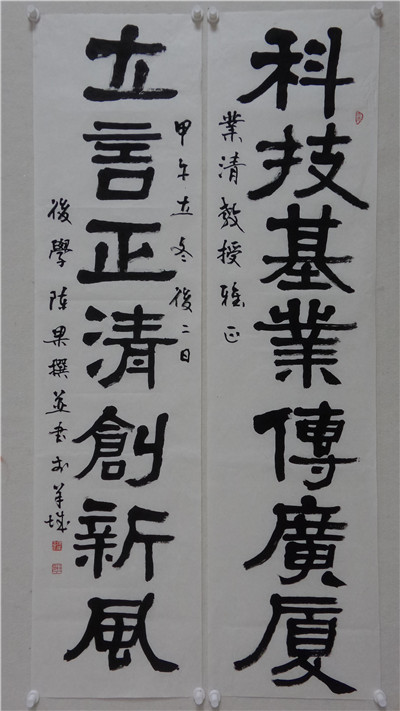 科技基業傳廣厦
業清教授雅正
立言正清創新風
甲午立冬後二日
後學陳果撰並書於羊城